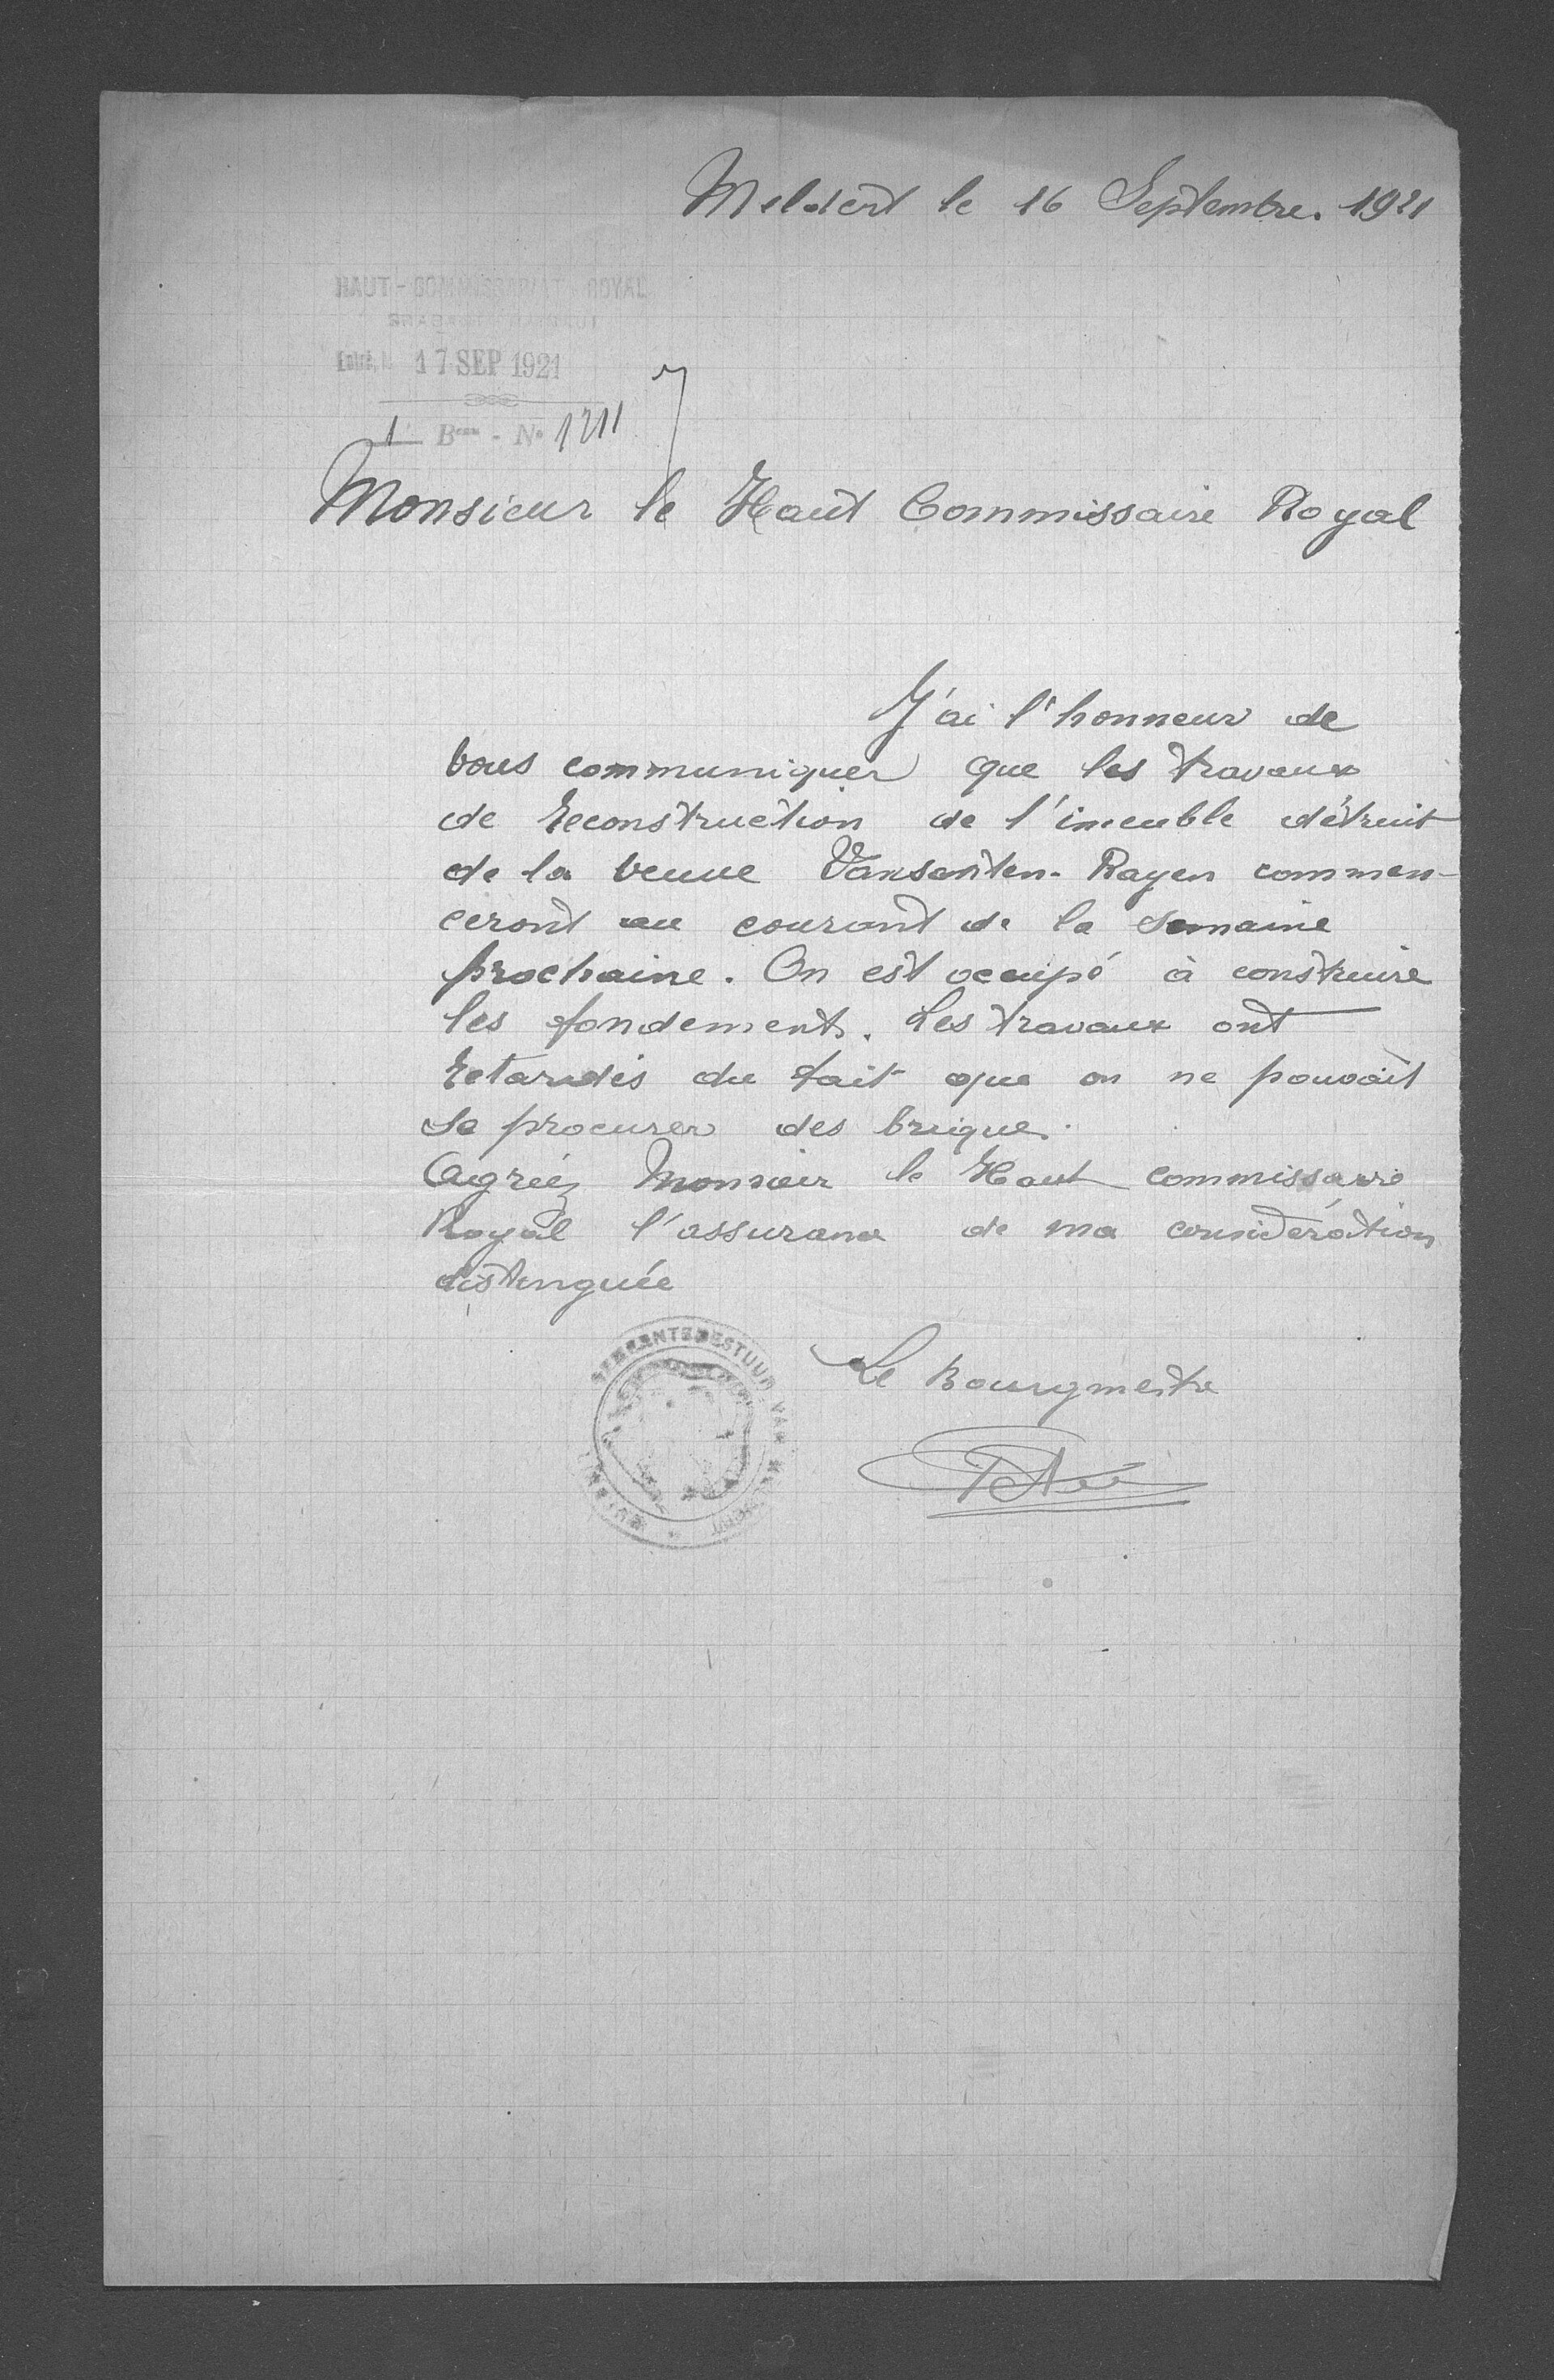 Meldert le 16 Septembre. 1921
HAUT-COMMISSARIAT ROYAL
17 SEP 1921
1 Beau - No 1211
Monsieur le Haut Commissaire Royal
J'ai l'honneur de
vous communiquer que les travaux
de reconstruction de l'imeuble détruit
de la veuve Vansanten-Rayen commen-
ceront au courant de la semaine
prochaine. On est occupé à construire
les fondements. Les travaux ont
retardés du fait que on ne pouvait
se procurer des briques.
Agréez Monsieur le Haut commissaire
Royal l'assurance de ma considération
distinguée
GEMEENTEBESTUUR VAN MELDERT
Le Bourgmestre